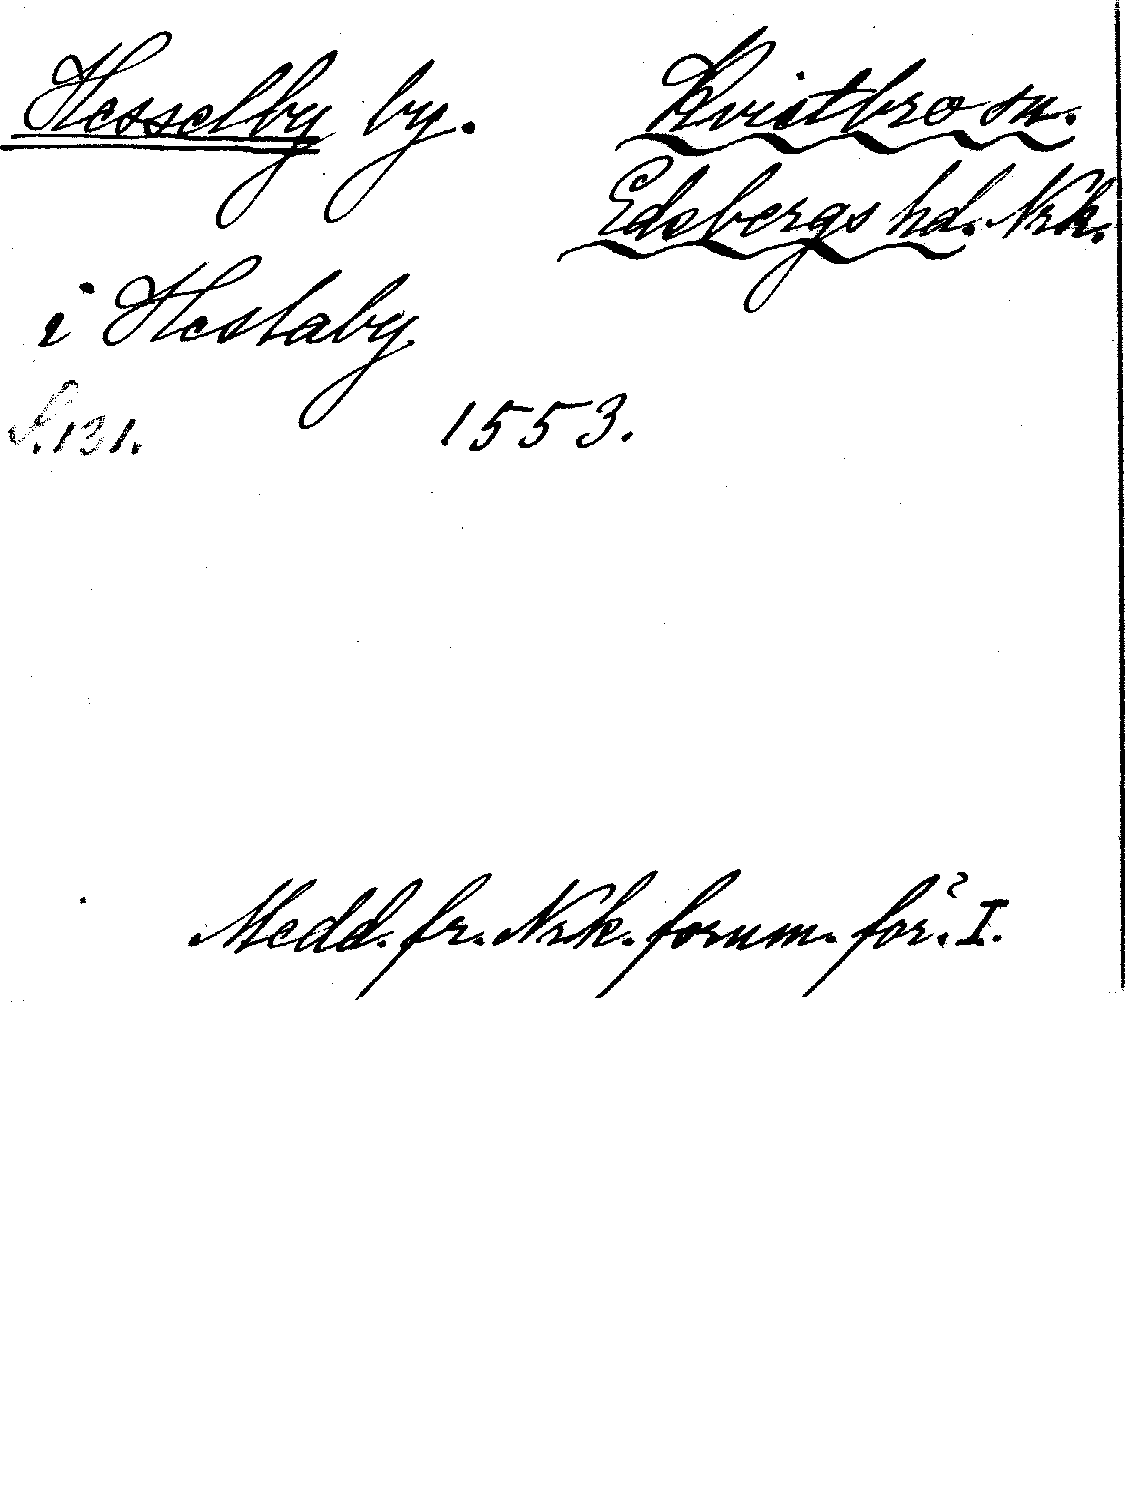 Hesselby by. Kvistbro sn.
Edsbergs hd. Nrk.
i Heslaby
S. 131. 1553.
Medd. fr. Nrk. fornm. för. I.